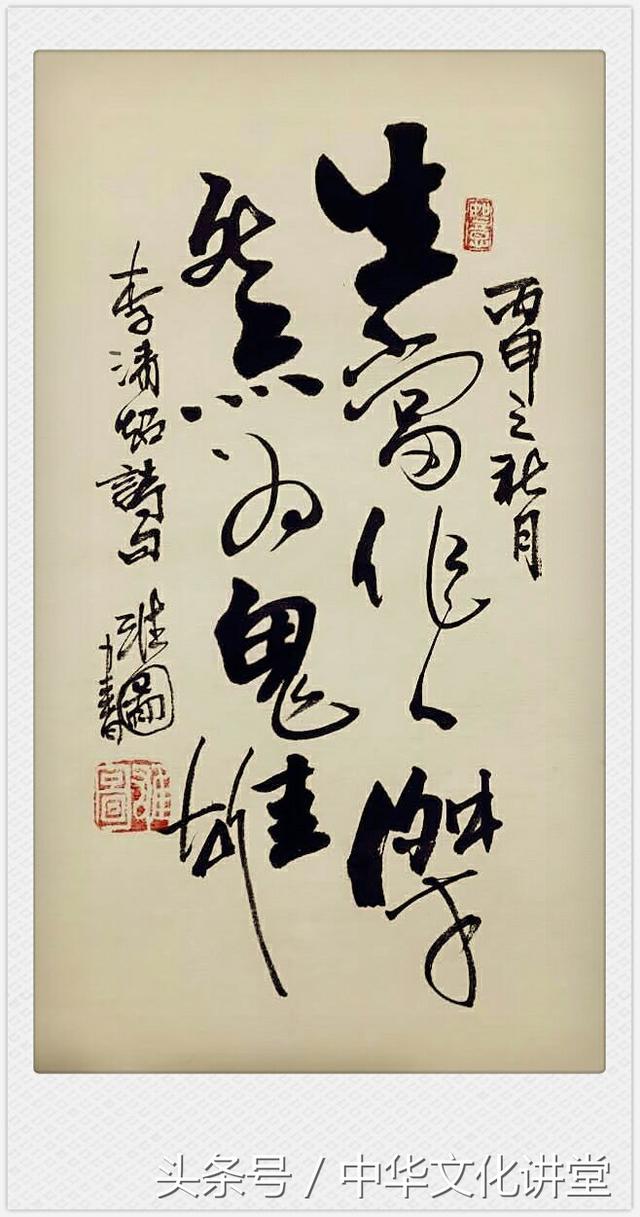 丙申之秋月
生當作人傑
死亦为鬼雄
李清照詩句
書
如意
头条号 / 中华文化讲堂